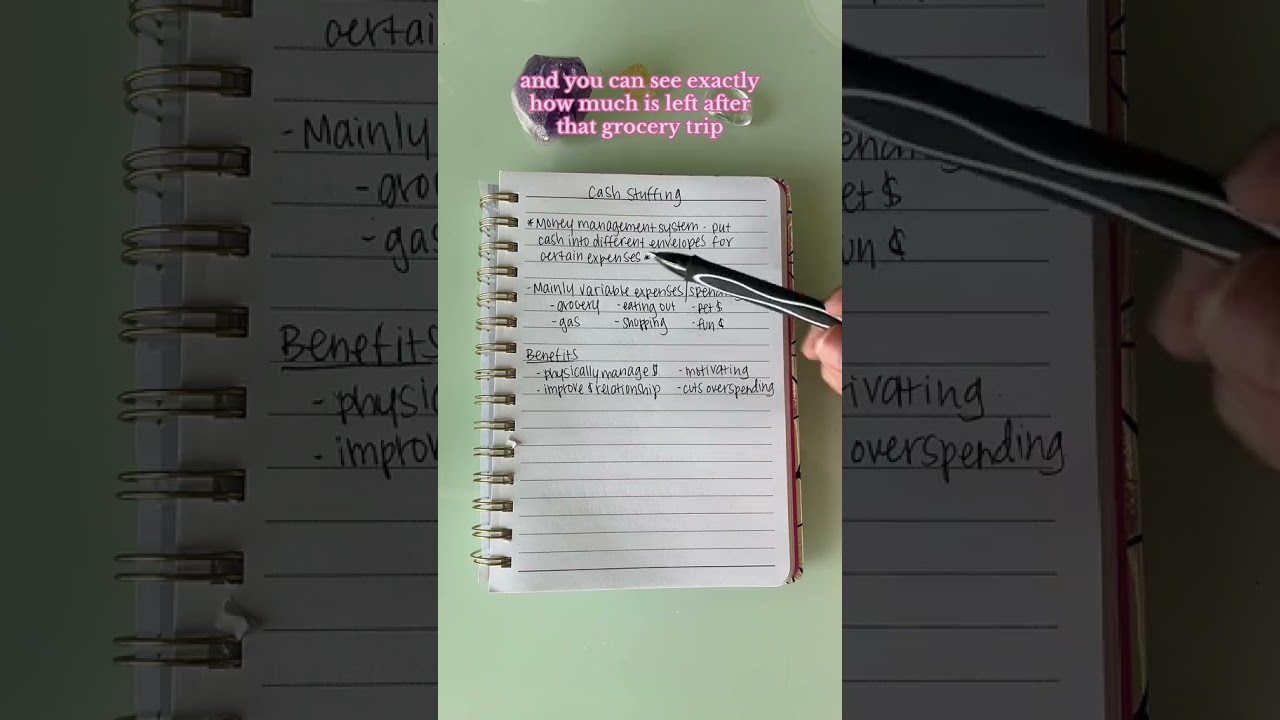 and you can see exactly
how much is left after
that grocery trip
Cash Stuffing
*Money management system - put
cash into different envelopes for
certain expenses*
-Mainly variable expenses/spending
-grocery -eating out -pet $
-gas -shopping -fun $
Benefits
-physically manage $ -motivating
-improve $ relationship -cuts overspending